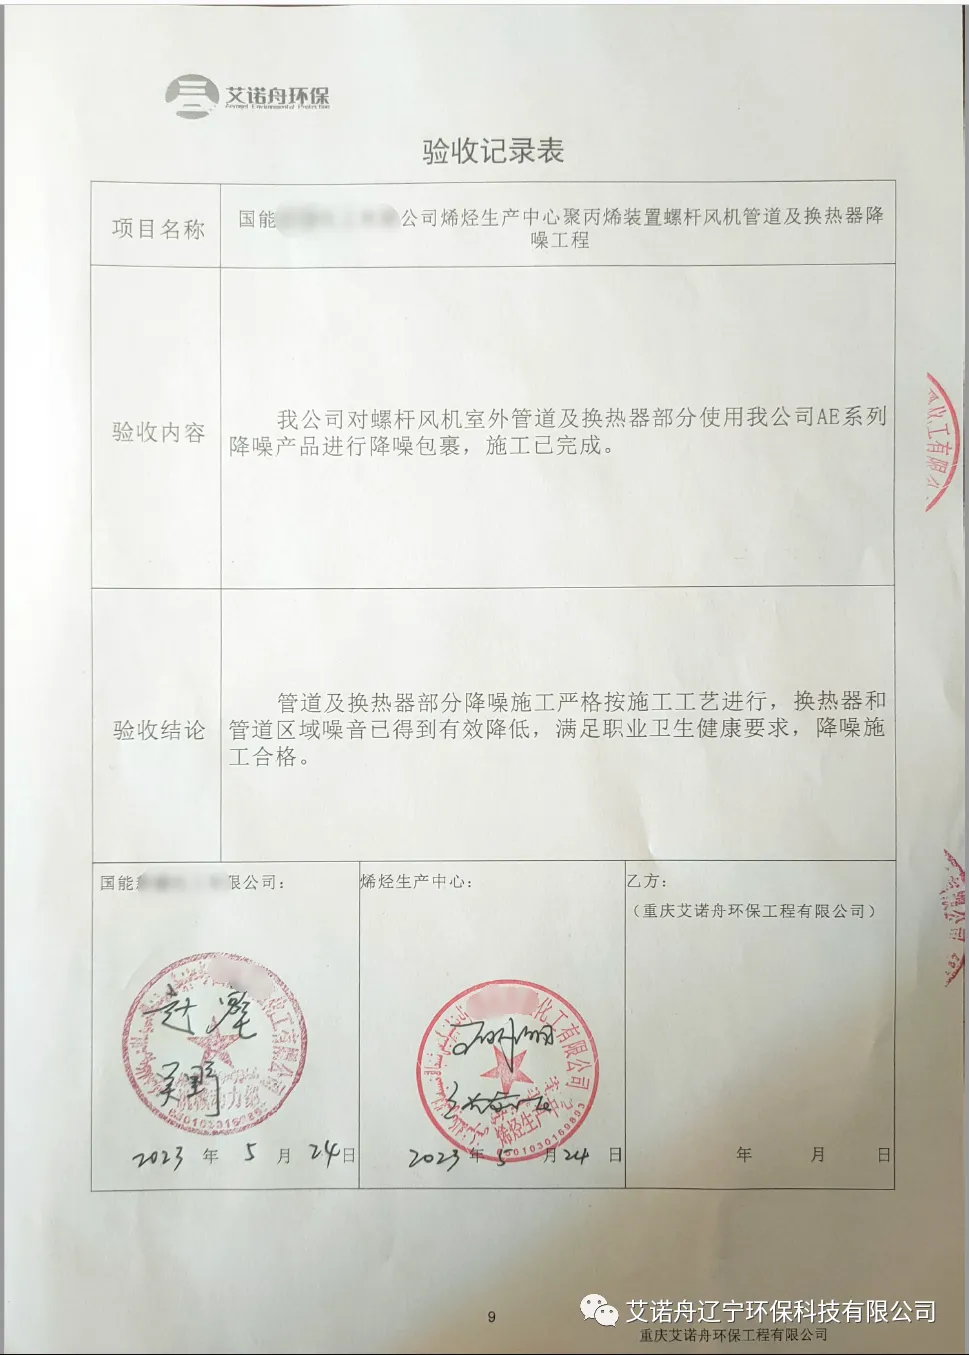 艾诺舟环保
验收记录表
项目名称
国能 公司烯烃生产中心聚丙烯装置螺杆风机管道及换热器降
噪工程
验收内容
我公司对螺杆风机室外管道及换热器部分使用我公司AE系列
降噪产品进行降噪包裹，施工已完成。
验收结论
管道及换热器部分降噪施工严格按施工工艺进行，换热器和
管道区域噪音已得到有效降低，满足职业卫生健康要求，降噪施
工合格。
国能 限公司：
烯烃生产中心：
乙方：
（重庆艾诺舟环保工程有限公司）
化工有限公司
烯烃生产中心
2023 年 5 月 24 日
2023 年 5 月 24 日
年 月 日
9
艾诺舟辽宁环保科技有限公司
重庆艾诺舟环保工程有限公司